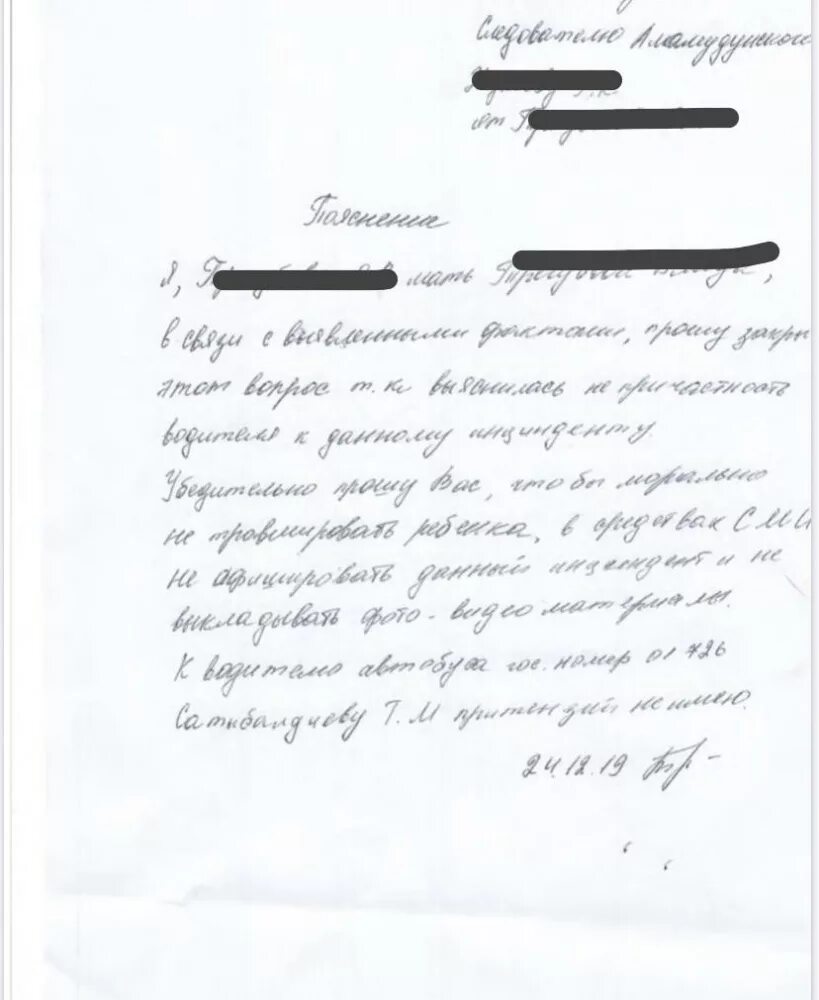 Следователю Аламудунского
от
Пояснение
Я, мать
в связи с выявленными фактами, прошу закры
этот вопрос т.к. выяснилась не причастность
водителя к данному инцинденту.
Убедительно прошу Вас, чтобы морально
не травмировать ребенка, в средствах СМИ
не афишировать данный инциндент и не
выкладывать фото - видео материалы.
К водителю автобуса гос. номер 01 726
Сатыбалдиеву Т.М притензий не имею.
24.12.19